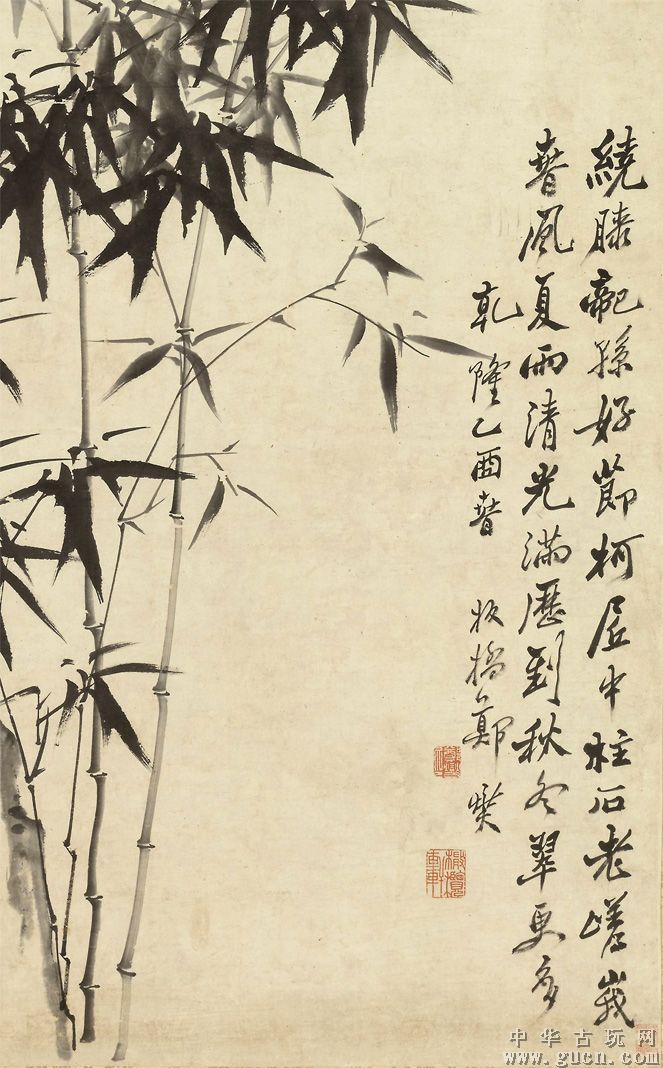 繞膝龍孫好節柯居中柱石老嵯峩
春風夏雨清光滿歷到秋冬翠更多
乾隆乙酉春
板橋鄭燮
中华古玩网
www.gucn.com